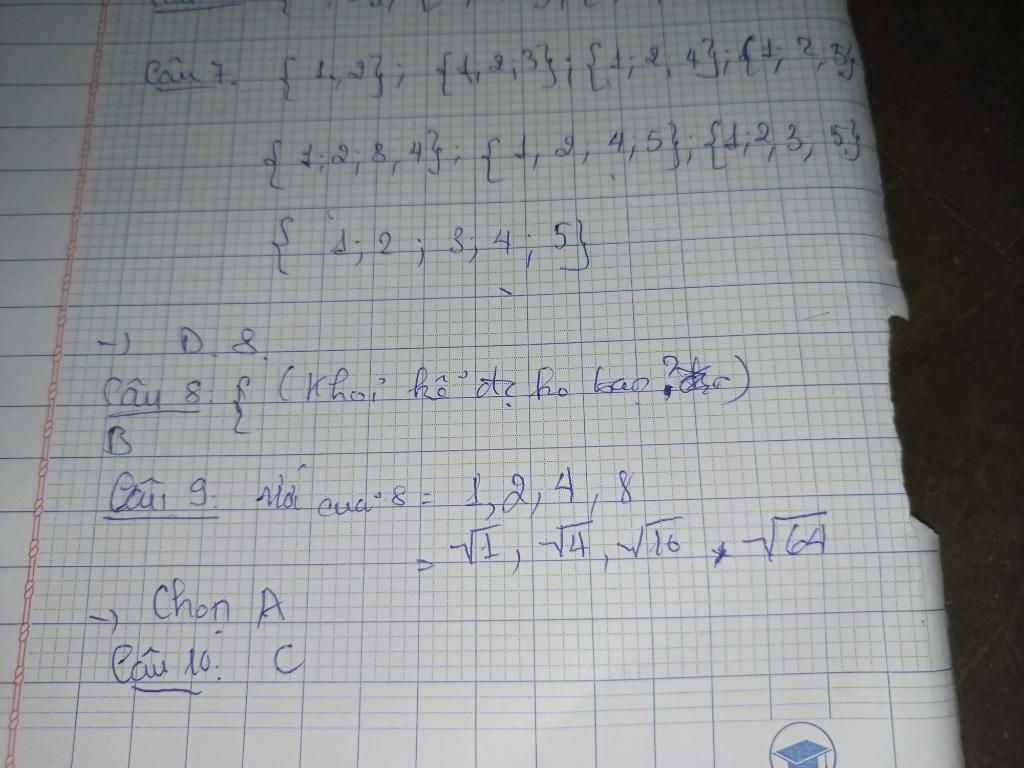 Câu 7. { 1, 2}; {1, 2; 3}; {1; 2, 4}; {1; 2; 3}
{ 1; 2; 3, 4}; { 1, 2, 4, 5}; {1; 2, 3; 5}
{ 1; 2; 3; 4; 5}
→ D. 8.
Câu 8. { (Khỏi kể
B
Câu 9. của 8 = 1, 2, 4, 8
= √1, √4, √16, √64
→ Chọn A
Câu 10: C